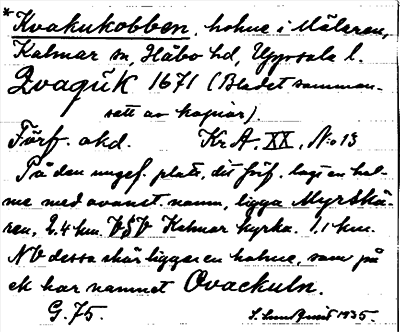 *Kvakukobben, holme i Mälaren,
Kalmar sn, Håbo hd, Uppsala l.
Qvagük 1671 (Bladet samman-
satt av kopior).
Förf. okd. Kr A. XX, N:o 13
På den ungef. plats, dit förf. lagt en hol-
me med ovanst. namn, ligga Myrskä-
ren, 2.4 km. VSV Kalmar kyrka. 1.1 km.
NV dessa skär ligger en holme, som på
ek har namnet Ovackuln.
G. 75. 1935.